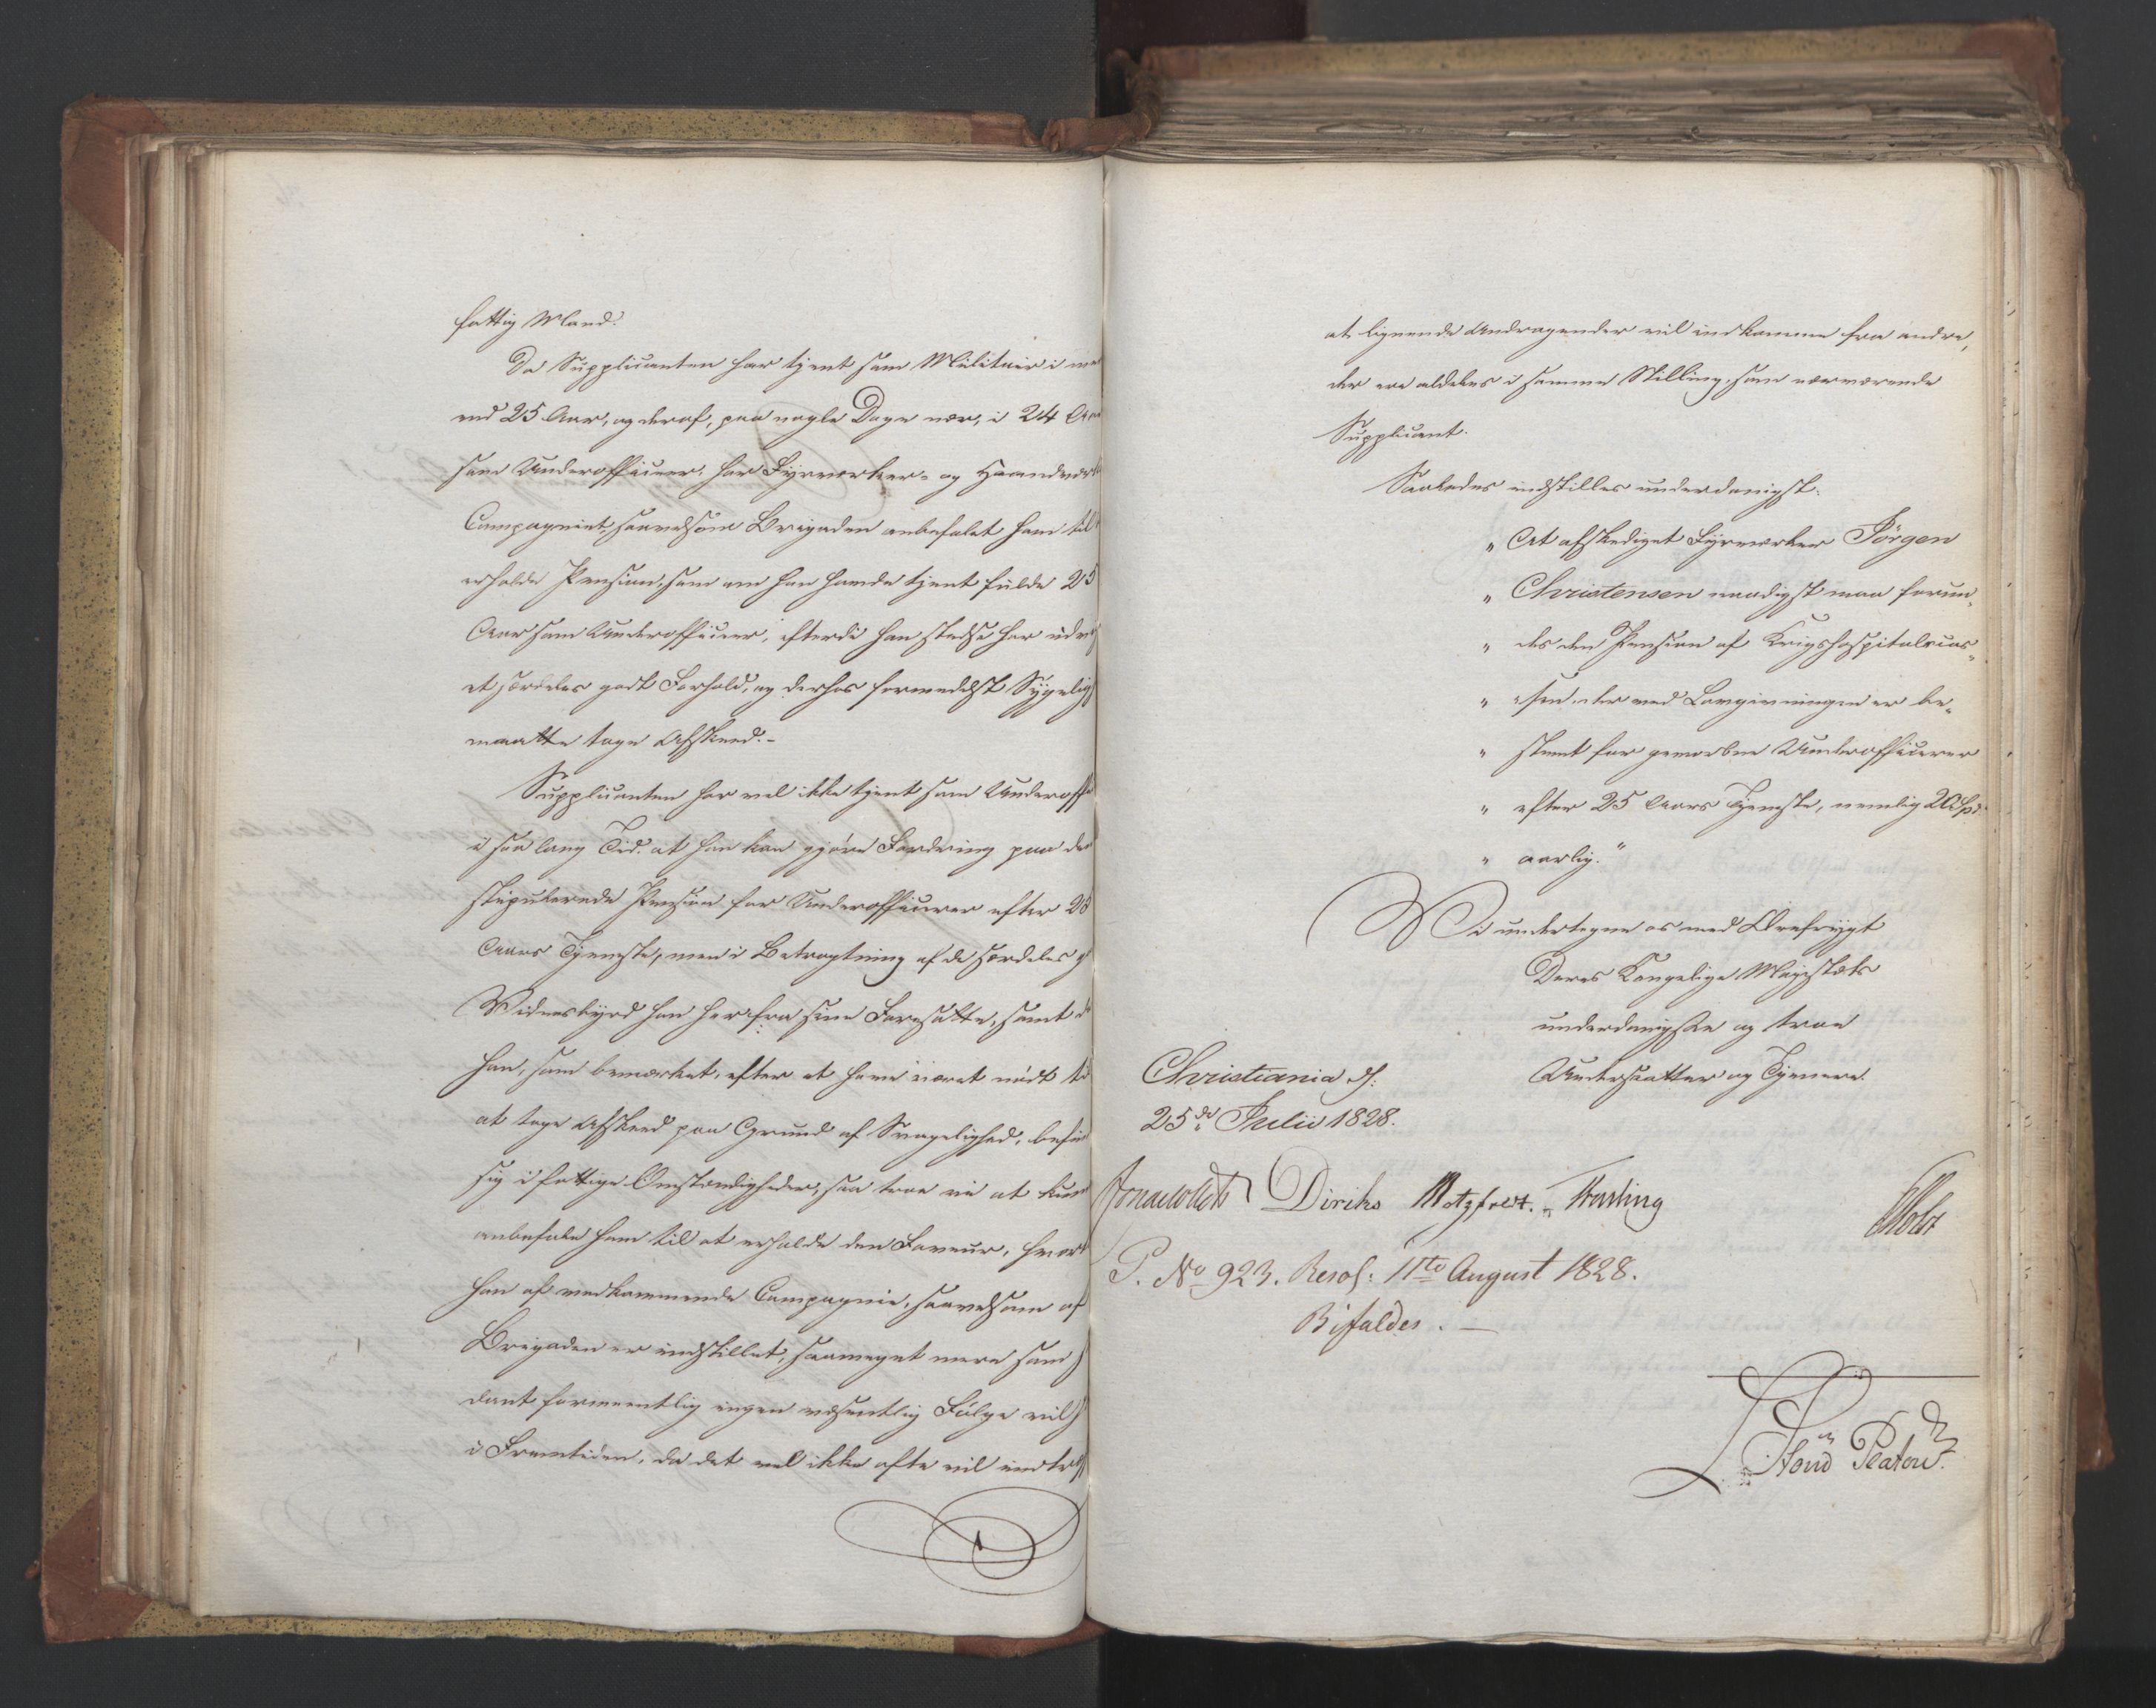 fattig Mand.
Da Supplicanten har tjent som Militair i me
end 25 Aar, og deraf, paa nogle Dage nær, i 24 Aar
som Underofficeer, har Fyrværker- og Haandværk
Compagniet, saavelsom Brigaden anbefalet ham til
erholde Pension, som om han havde tjent fulde 25
Aar som Underofficeer, efterdi han stedse har udv
et særdeles godt Forhold, og derhos formedelst Sygelig
maatte tage Afskeed.-
Supplicanten har vel ikke tjent som Underoffi
i saa lang Tid, at han kan gjøre Fordring paa den
stipulerede Pension for Underofficerer efter 25
Aars Tjeneste, men i Betragtning af de særdeles g
Vidnesbyrd han har fra sine Foresatte, samt da
han, som bemærket, efter at have været nødt til
at tage Afskeed paa Grund af Svagelighed, befin
sig i fattige Omstændigheder, saa troe vi at kun
anbefale ham til at erholde den Faveur, hvort
han af vedkommende Compagnie, saavelsom af
Brigaden er indstillet, saameget mere som s
dant formeentlig ingen væsentlig Følge vil
i Fremtiden, da det vel ikke ofte vil indtræf
at lignende Andragender vil indkomme fra andre,
der ere aldeles i samme Stilling, som nærværende
Supplicant.
Saaledes indstilles underdanigst:
" At afskediget Fyrværker Jörgen
" Christensen naadigst maa forun-
" des den Pension af Krigshospitalcas-
" sen, der ved Lovgivningen er be-
" stemt for hvervede Underofficerer
" efter 25 Aars Tjeneste, nemlig 20 Spd
" aarlig."
Vi undertegne os med Ærefrygt
Deres Kongelige Majestæts
underdanigste og troe
Undersaatter og Tjenere.
Christiania d:
25de Julii 1828.
Diriks Motzfeldt. Fasting
Holst
P. No 923. Resol: 11te August 1828.
Bifaldes. —
Platou.